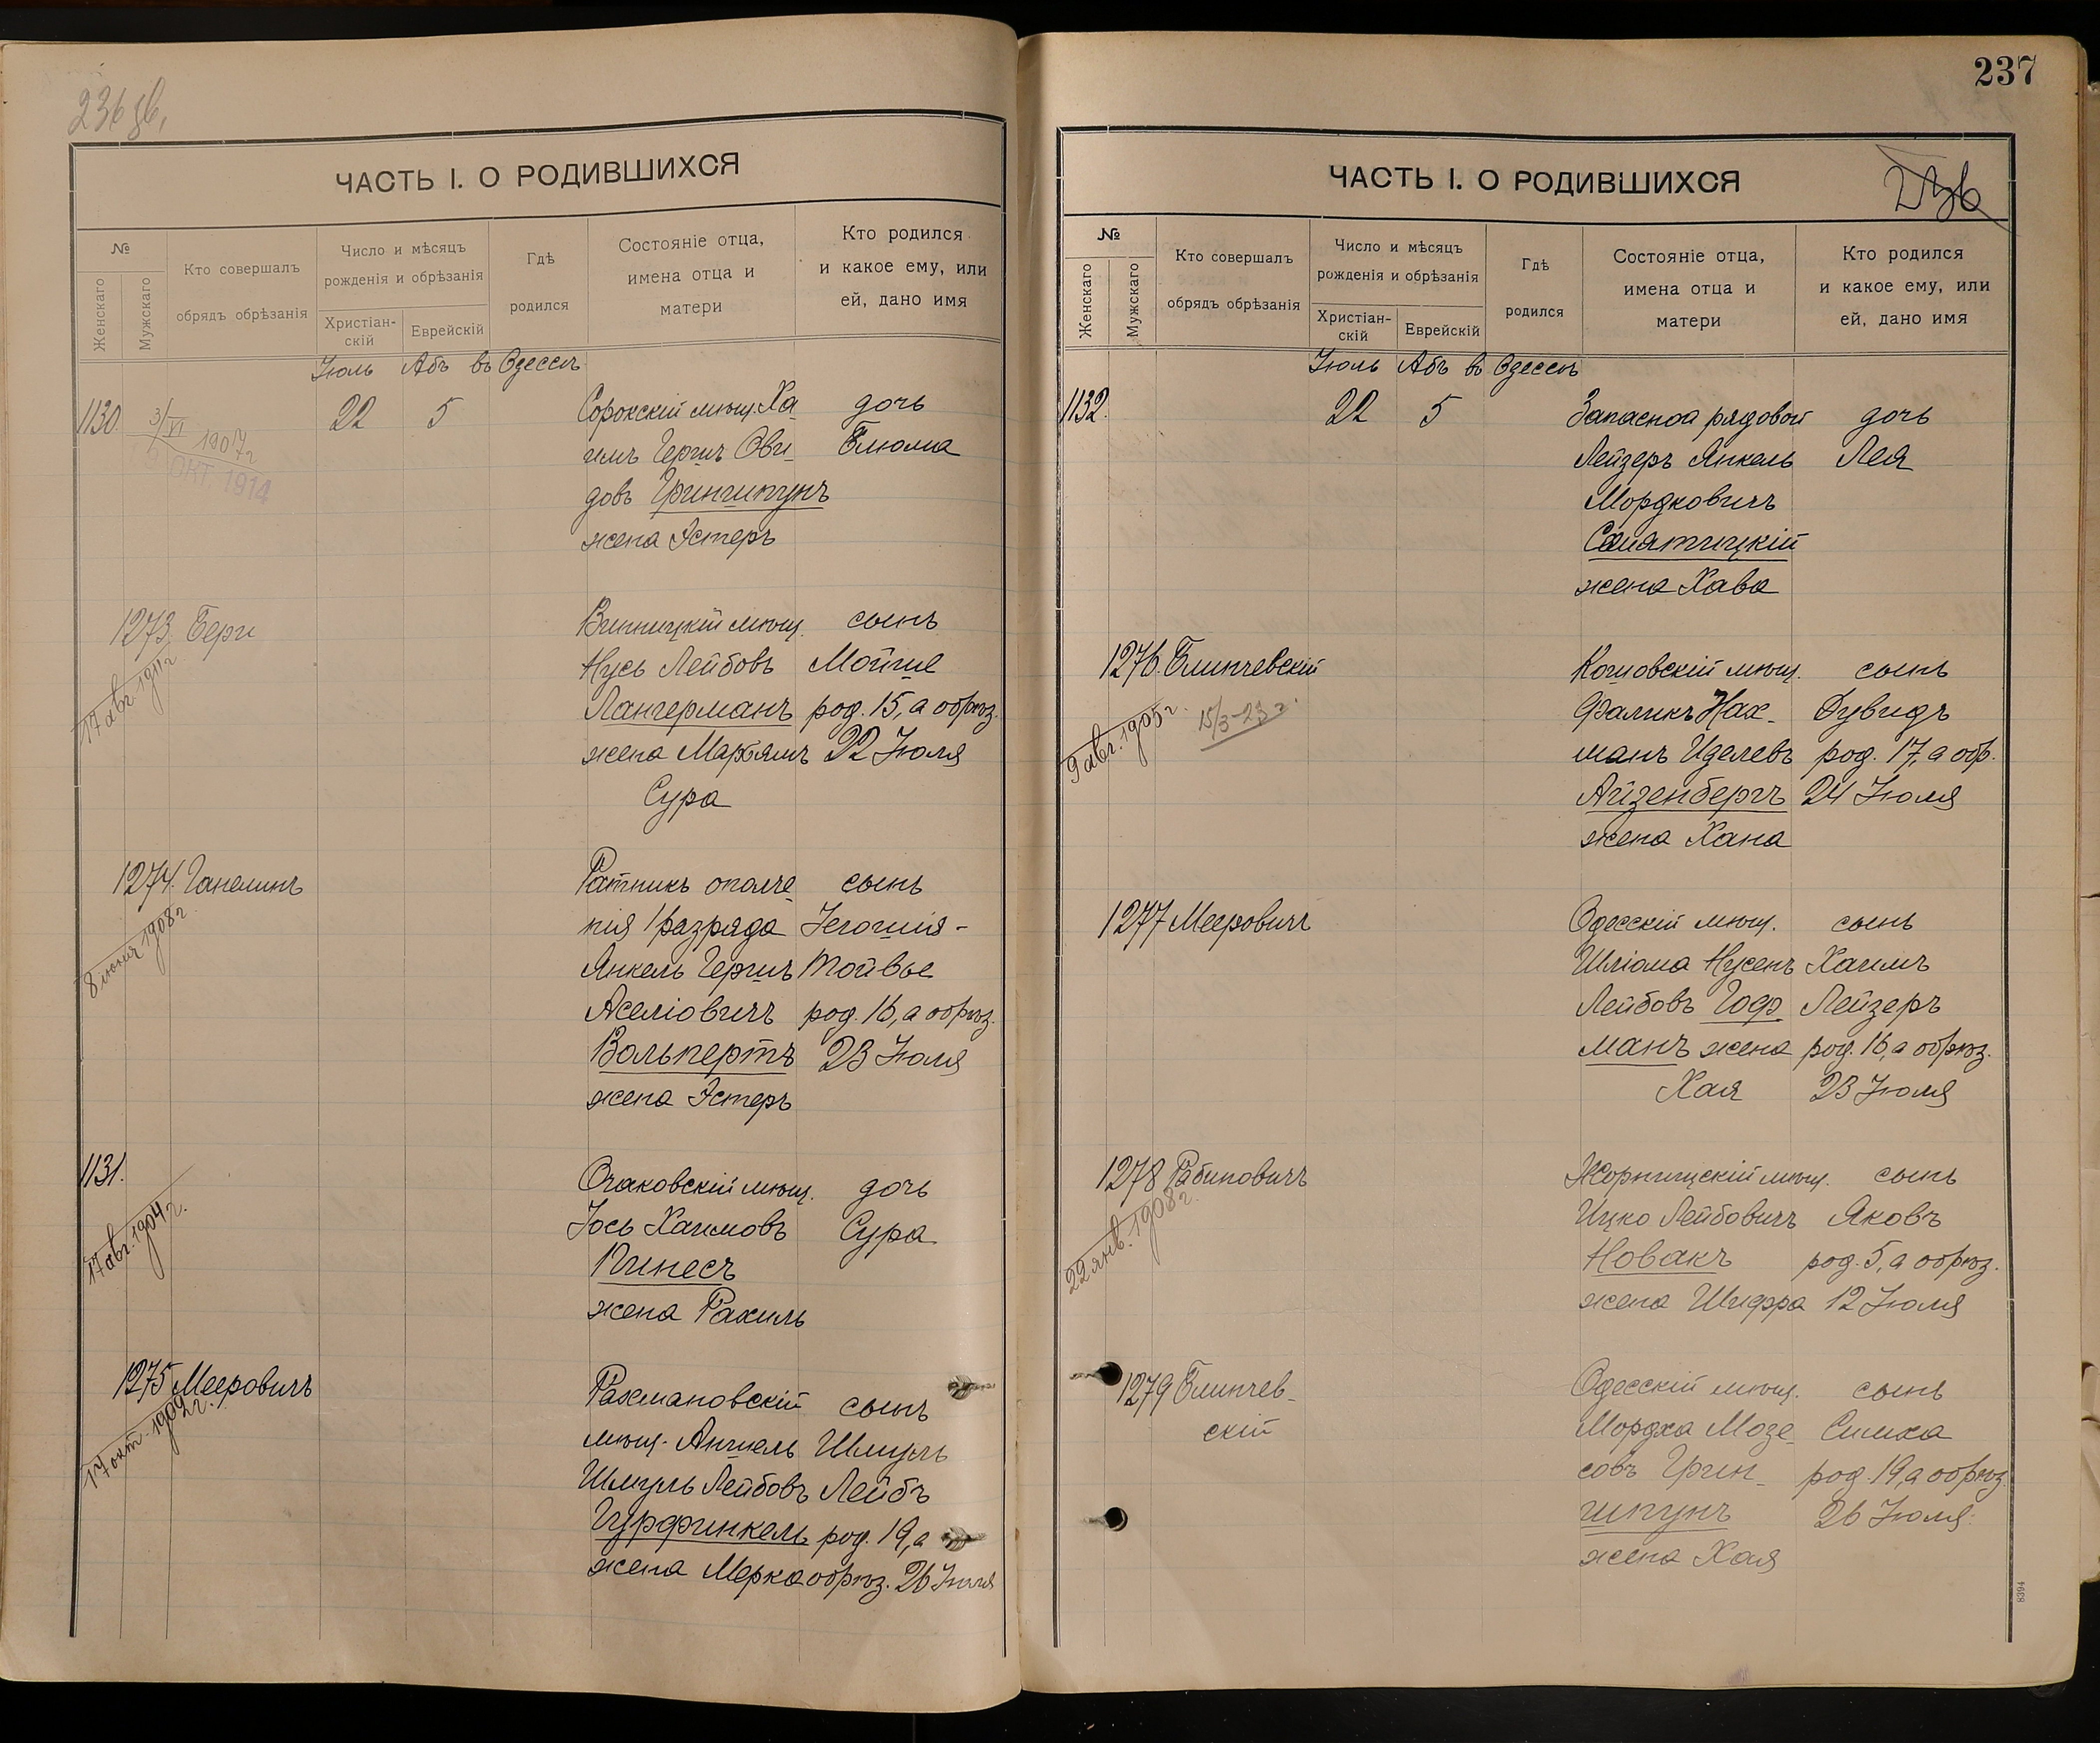 236 зв.
ЧАСТЬ I. О РОДИВШИХСЯ
№
Женскаго
Мужскаго
Кто совершалъ
обрядъ обрѣзанія
Число и мѣсяцъ
рожденія и обрѣзанія
Христіан-
скій
Еврейскій
Гдѣ
родился
Состояніе отца,
имена отца и
матери
Кто родился
и какое ему, или
ей, дано имя
Іюль Абъ въ Одессѣ
1130. 22 5 Сорокскій мѣщ. Ха дочь
имъ Гершъ Ови- Блюма
довъ Гриншпунъ
жена Эстеръ
3/VI 1907 г
5 ОКТ. 1914
1273. Бери Винницкій мѣщ. сынъ
Нусь Лейбовъ Мойше
Лангерманъ род. 15, а обрѣз.
жена Маріямъ 22 Іюля
Сура
17 авг. 1911 г
1274. Ганелинъ Ратникъ ополче- сынъ
нія 1 разряда Іегошія-
Янкель Гершъ Товье
Аселіовичъ род. 16, а обрѣз.
Вольпертъ 23 Іюля
жена Эстеръ
8 іюня 1908 г
1131. Очаковскій мѣщ. дочь
Іось Хаимовъ Сура
Пинесъ
жена Рахиль
17 авг. 1904 г.
1275 Мееровичъ Рахмановскій сынъ
мѣщ. Аншель Шмуль
Шмуль Лейбовъ Лейбъ
Гурфинкель род. 19, а
жена Мерка обрѣз. 26 Іюля
17 окт. 1909 г.
237
ЧАСТЬ I. О РОДИВШИХСЯ
236
№
Женскаго
Мужскаго
Кто совершалъ
обрядъ обрѣзанія
Число и мѣсяцъ
рожденія и обрѣзанія
Христіан-
скій
Еврейскій
Гдѣ
родился
Состояніе отца,
имена отца и
матери
Кто родился
и какое ему, или
ей, дано имя
Іюль Абъ въ Одессѣ
1132. 22 5 Запасной рядовой дочь
Лейзеръ Янкель Лея
Мордковичъ
Семятицкій
жена Хава
1276. Блинчевскій Кошовскій мѣщ. сынъ
Фаликъ Нах- Дувидъ
манъ Иделевъ род. 17, а обр.
Айзенбергъ 24 Іюля
жена Хана
9 авг. 1905 г.
15/3-23 г.
1277 Мееровичъ Одесскій мѣщ. сынъ
Шліома Нусенъ Хаимъ
Лейбовъ Гоф Лейзеръ
манъ жена род. 16, а обрѣз.
Хая 23 Іюля
1278 Рабиновичъ Жорнищскій мѣщ. сынъ
Ицко Лейбовичъ Яковъ
Новакъ род. 5, а обрѣз.
жена Шифра 12 Іюля
22 янв. 1908 г.
1279 Блинчев- Одесскій мѣщ. сынъ
скій Мордха Мозе- Симха
совъ Грин- род. 19, а обрѣз.
шпунъ 26 Іюля
жена Хая
8394